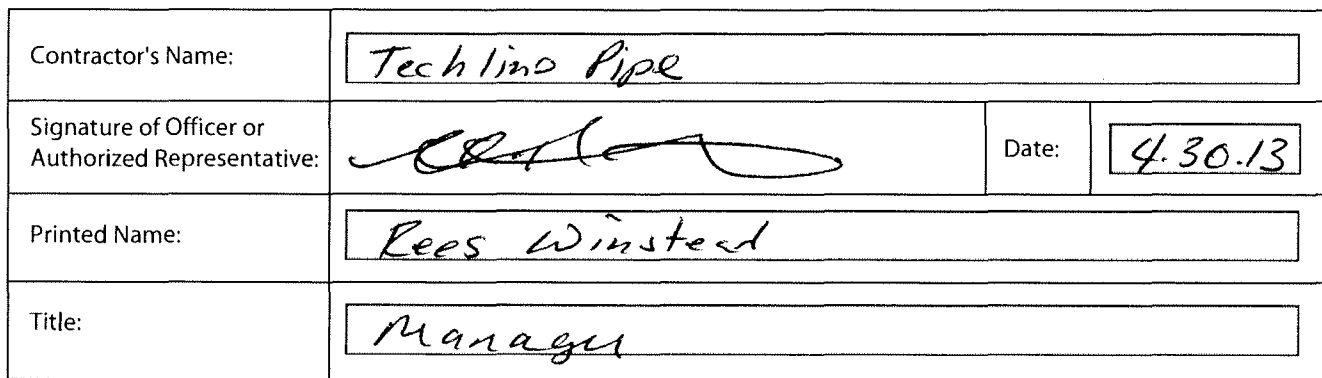 Contractor's Name: Techline Pipe
Signature of Officer or
Authorized Representative: Date: 4.30.13
Printed Name: Rees Winstead
Title: Manager